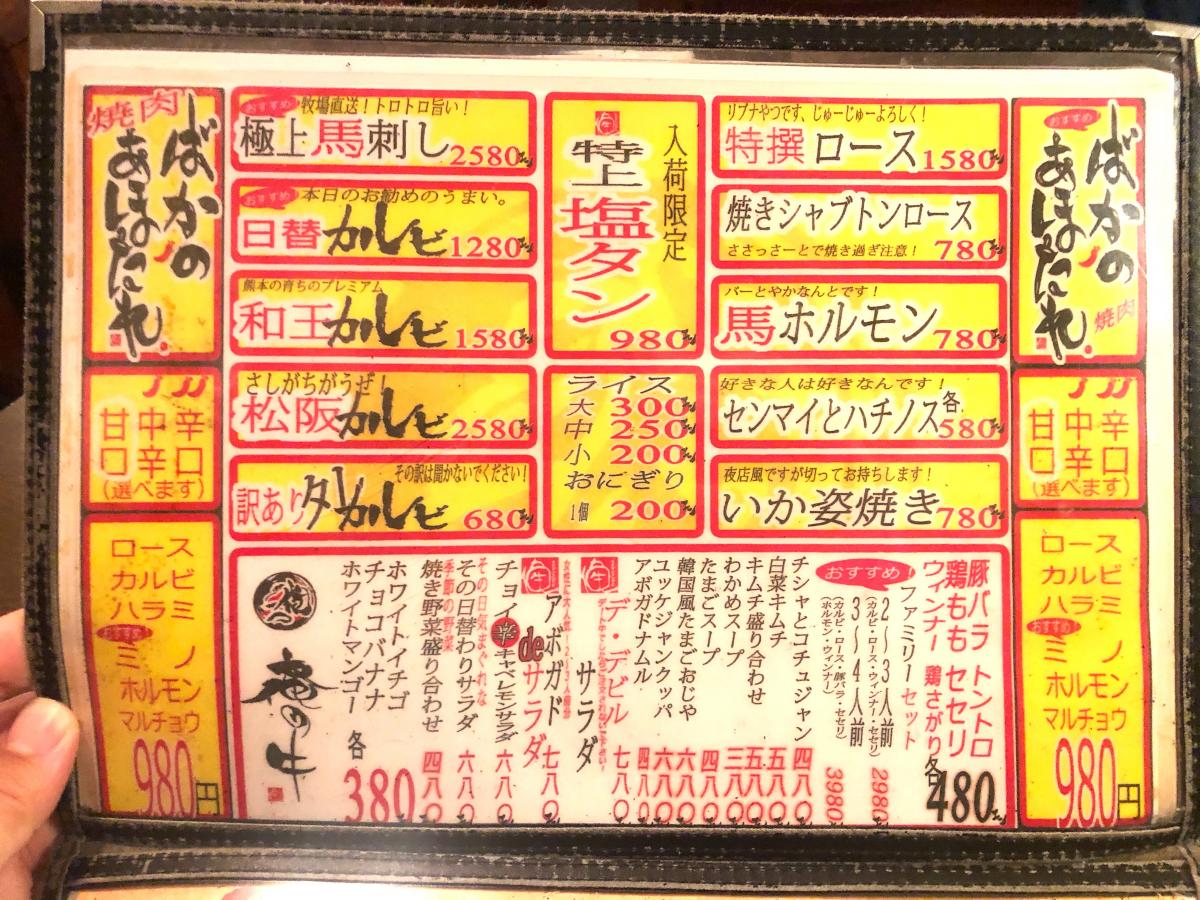 焼肉
ばかの
あほだれ
甘口 中辛 辛口
(選べます)
ロース
カルビ
ハラミ
おすすめ
ミノ
ホルモン
マルチョウ
980円
おすすめ 牧場直送！トロトロ旨い！
極上馬刺し 2580
おすすめ 本日のお勧めのうまい。
日替カルビ 1280
熊本の育ちのプレミアム
和王カルビ 1580
さしがちがうぜ！
松阪カルビ 2580
その訳は聞かないでください！
訳ありタレカルビ 680
入荷限定
特上塩タン
980
ライス
大 300
中 250
小 200
おにぎり
1個 200
リブナやつです、じゅーじゅーよろしく！
特撰ロース 1580
焼きシャブトンロース
ささっさーとで焼き過ぎ注意！ 780
バーとやかなんとです！
馬ホルモン 780
好きな人は好きなんです！
センマイとハチノス 各580
夜店風ですが切ってお持ちします！
いか姿焼き 780
おすすめ
ばかの
あほだれ
焼肉
甘口 中辛 辛口
(選べます)
ロース
カルビ
ハラミ
おすすめ
ミノ
ホルモン
マルチョウ
980円
豚バラ トントロ
鶏もも セセリ
ウィンナー 鶏さがり 各480
おすすめ！ ファミリーセット
2～3人前 2980
(カルビ・ロース・ウィンナー・セセリ)
3～4人前 3980
(カルビ・ロース・豚バラ・セセリ)
(ホルモン・ウィンナー)
チシャとコチュジャン 四八〇
白菜キムチ 五八〇
キムチ盛り合わせ 五八〇
わかめスープ 三八〇
たまごスープ 四八〇
韓国風たまごおじや 六八〇
ユッケジャンクッパ 六八〇
アボガドナムル 四八〇
デ・デビルサラダ 七八〇
アボガドdeサラダ 七八〇
チョイ辛キャベレモンサラダ 六八〇
その日気まぐれな
その日替わりサラダ 六八〇
季節の野菜
焼き野菜盛り合わせ 四八〇
ホワイトイチゴ
チョコバナナ
ホワイトマンゴー
各380
俺の牛